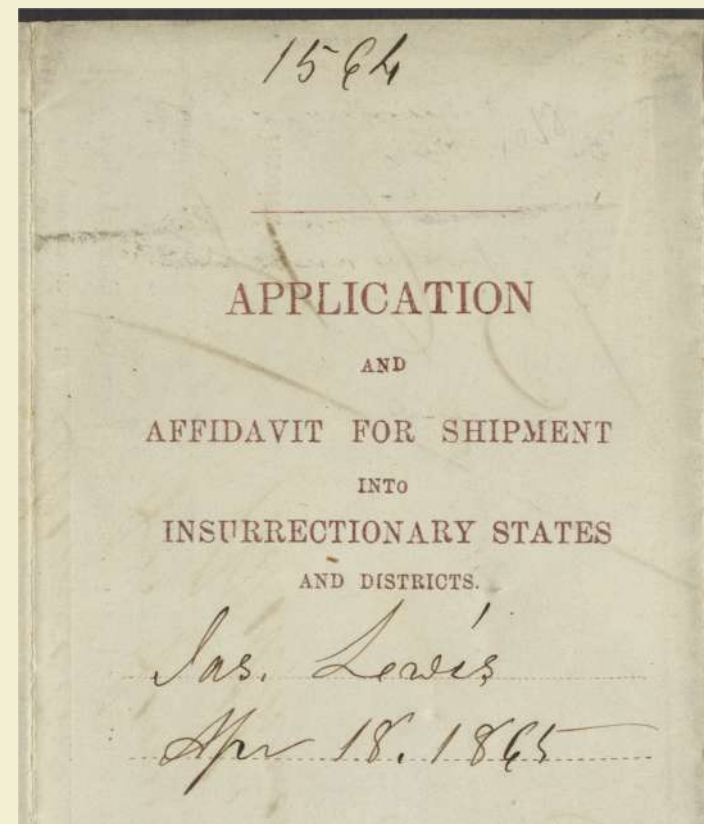 1564
APPLICATION
AND
AFFIDAVIT FOR SHIPMENT
INTO
INSURRECTIONARY STATES
AND DISTRICTS.
Jas. Lewis
Apr 18. 1865